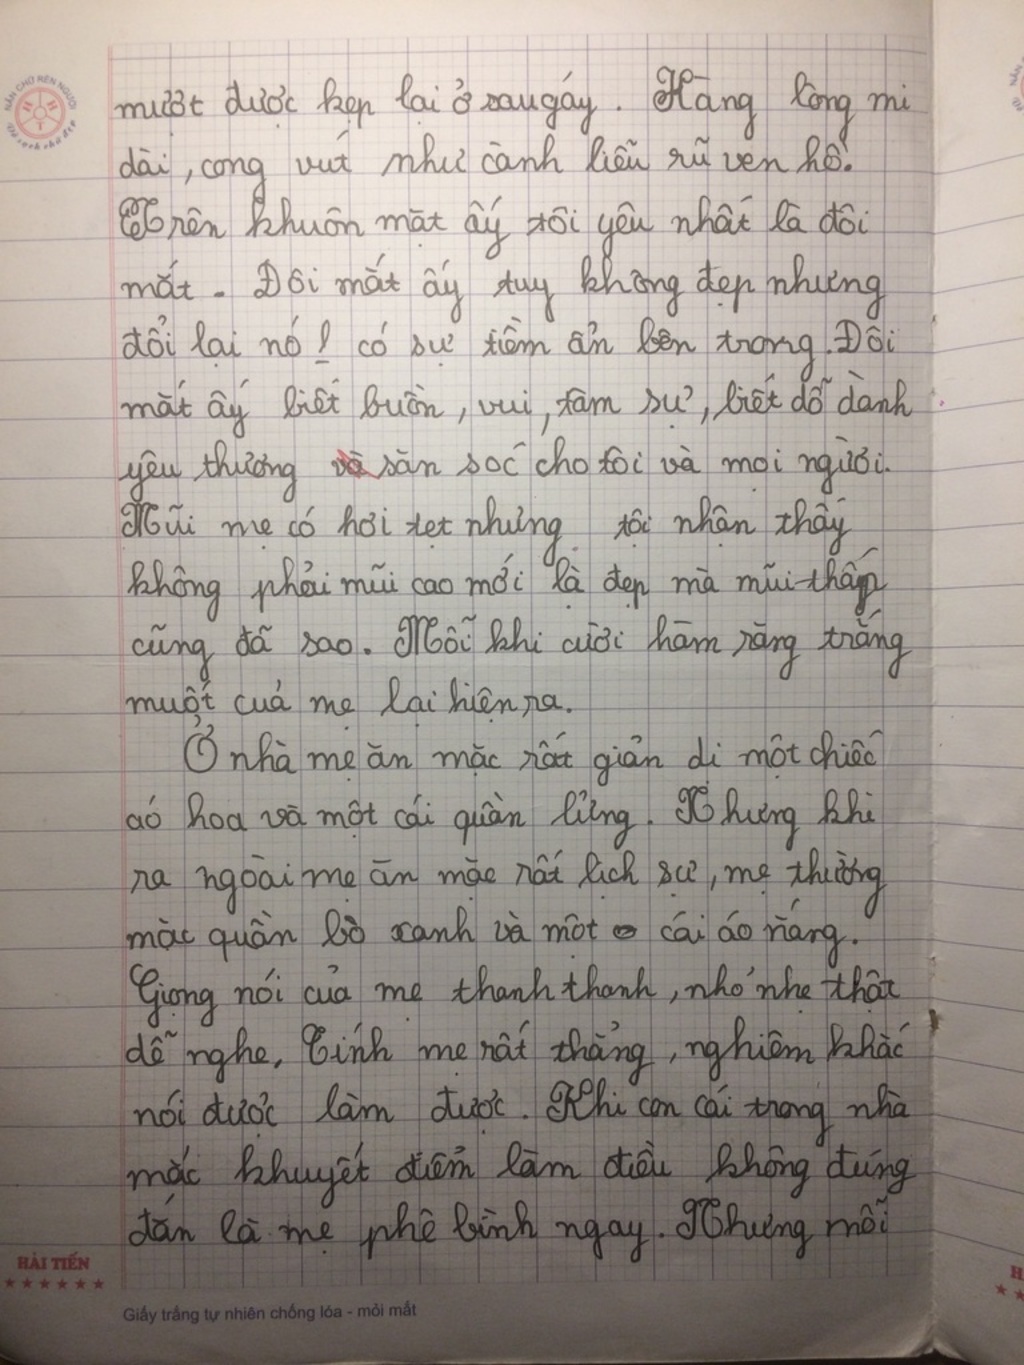 mượt được kẹp lại ở sau gáy. Hàng lông mi
dài, cong vút như cành liễu rũ ven hồ.
Trên khuôn mặt ấy tôi yêu nhất là đôi
mắt. Đôi mắt ấy tuy không đẹp nhưng
đổi lại nó ! có sự tiềm ẩn bên trong. Đôi
mắt ấy biết buồn, vui, tâm sự, biết dỗ dành
yêu thương và săn sóc cho tôi và mọi người.
Mũi mẹ có hơi tẹt nhưng tôi nhận thấy
không phải mũi cao mới là đẹp mà mũi thấp
cũng đã sao. Mỗi khi cười hàm răng trắng
muốt của mẹ lại hiện ra.
Ở nhà mẹ ăn mặc rất giản dị một chiếc
áo hoa và một cái quần lửng. Nhưng khi
ra ngoài mẹ ăn mặc rất lịch sự, mẹ thường
mặc quần bò xanh và một cái áo nắng.
Giọng nói của mẹ thanh thanh, nhỏ nhẹ thật
dễ nghe. Tính mẹ rất thẳng, nghiêm khắc
nói được làm được. Khi con cái trong nhà
mắc khuyết điểm làm điều không đúng
đắn là mẹ phê bình ngay. Nhưng mỗi
HẢI TIẾN
Giấy trắng tự nhiên chống lóa - mỏi mắt